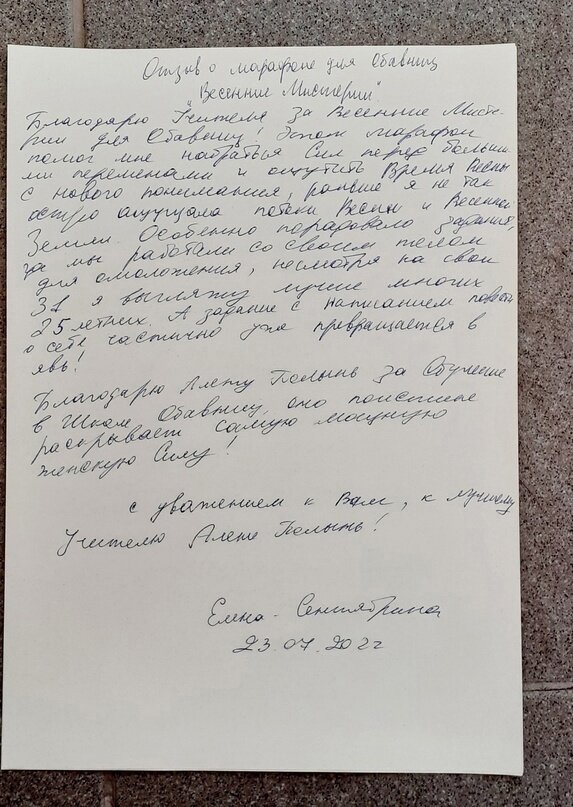 Отзыв о марафоне для Обавниц
"Весенние Мистерии"
Благодарю Учителя за Весенние Мисте-
рии для Обавниц! Этот марафон
помог мне набраться Сил перед больши-
ми переменами и ощутить Время Весны
с нового понимания, раньше я не так
остро ощущала потоки Весны и Весенней
Земли. Особенно порадовало задания,
где мы работали со своим телом
для омоложения, несмотря на свои
31 я выгляжу лучше многих
25 летних. А задание с написанием повести
о себе частично уже превращается в
явь!
Благодарю Алену Полынь за Обучение
в Школе Обавниц, оно поистине
раскрывает самую мощную
женскую Силу!
с уважением к Вам, к лучшему
Учителю Алене Полынь!
Елена Сентябрина
23.07.202г